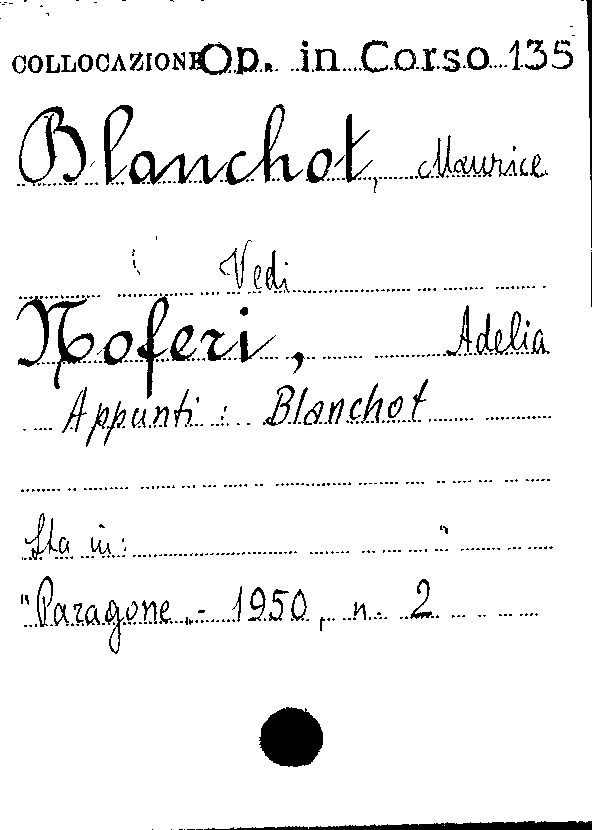 COLLOCAZIONE Op. in Corso 135
Blanchot, Maurice
Vedi
Noferi, Adelia
Appunti: Blanchot
Sta in:
"Paragone„- 1950, n. 2